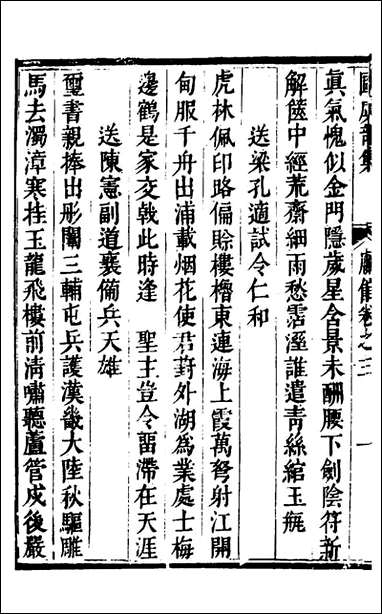 真氣愧似金門隱歲星含景未酬腰下劍陰符新
解篋中經荒齋細雨愁霑溼誰遣青絲綰玉瓶
送梁孔適試令仁和
虎林佩印略偏賒樓櫓東連海上霞萬弩射江開
甸服千舟出浦載烟花使君葑外湖為業處士梅
邊鶴是家交戟此時逢 聖王豈令留滯在天涯
送陳憲副道襄備兵天雄
璽書親捧出彤闈三輔屯兵護漢畿大陸秋驅雕
馬去濁漳寒挂玉龍飛樓前清嘯聽蘆管戍後嚴